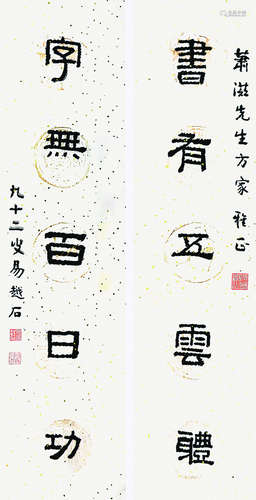 蕭滋先生方家雅正
書有五雲體
字無百日功
九十二叟易越石